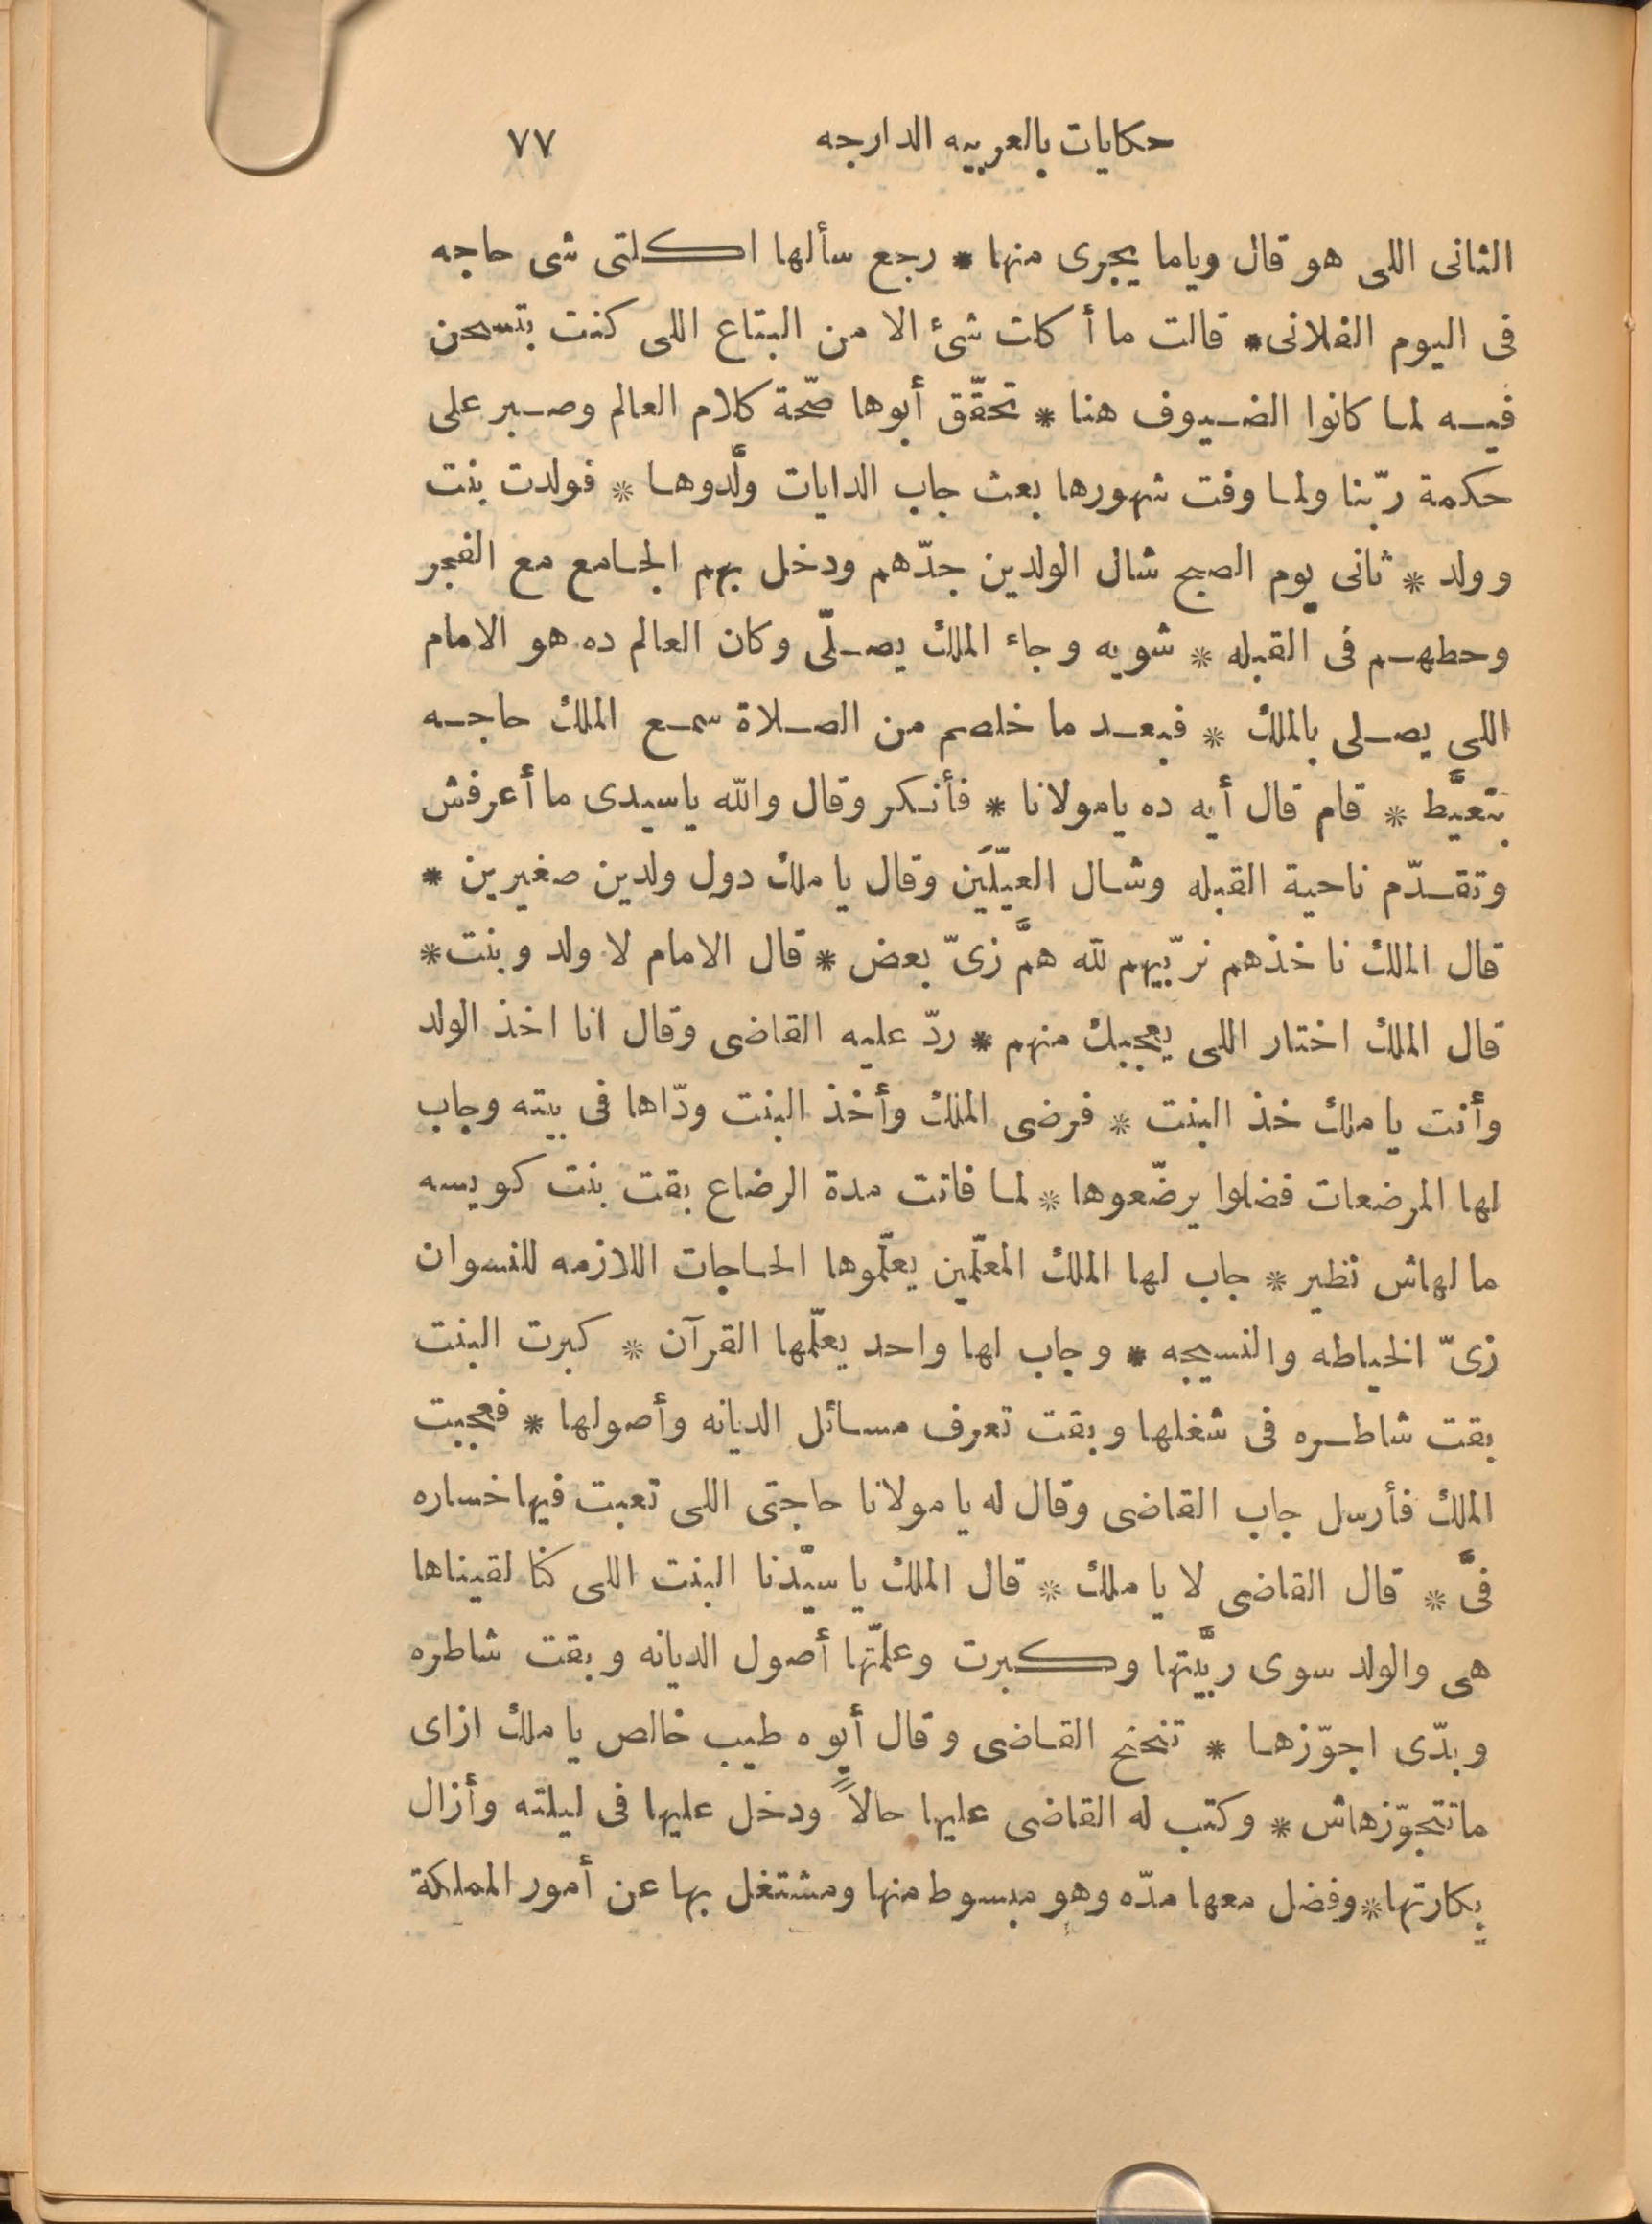 حكايات بالعربيه الدارجه ٧٧
الثانى اللى هو قال وياما يجرى منها * رجع سألها اكلتى شى حاجه
فى اليوم الفلانى * قالت ما أكلت شئ الا من البتاع اللى كنت بتسحن
فيه لما كانوا الضيوف هنا * تحقّق أبوها صحّة كلام العالم وصبر على
حكمة ربّنا ولما وفت شهورها بعث جاب الدايات ولَّدوها * فولدت بنت
وولد * ثانى يوم الصبح شال الولدين جدّهم ودخل بهم الجامع مع الفجر
وحطهم فى القبله * شويه وجاء الملك يصلّى وكان العالم ده هو الامام
اللى يصلى بالملك * فبعد ما خلصم من الصلاة سمع الملك حاجه
بتعيَّط * قام قال أيه ده يامولانا * فأنكر وقال والله ياسيدى ما أعرفش
وتقدّم ناحية القبله وشال العيّلَين وقال يا ملك دول ولدين صغيرين *
قال الملك ناخذهم نربّيهم لله همَّ زىّ بعض * قال الامام لا ولد وبنت *
قال الملك اختار اللى يعجبك منهم * ردّ عليه القاضى وقال انا اخذ الولد
وأنت يا ملك خذ البنت * فرضى الملك وأخذ البنت ودّاها فى بيته وجاب
لها المرضعات فضلوا يرضّعوها * لما فاتت مدة الرضاع بقت بنت كويسه
ما لهاش نظير * جاب لها الملك المعلّمين يعلّموها الحاجات اللازمه للنسوان
زىّ الخياطه والنسيجه * وجاب لها واحد يعلّمها القرآن * كبرت البنت
بقت شاطره فى شغلها وبقت تعرف مسائل الديانه وأصولها * فعجبت
الملك فأرسل جاب القاضى وقال له يا مولانا حاجتى اللى تعبت فيها خساره
فىَّ * قال القاضى لا يا ملك * قال الملك يا سيّدنا البنت اللى كنّا لقيناها
هى والولد سوى ربَّيتها وكبرت وعلّمتها أصول الديانه وبقت شاطره
وبدّى اجوّزها * تنحنح القاضى وقال أيوه طيب خالص يا ملك ازاى
ماتتجوّزهاش * وكتب له القاضى عليها حالاً ودخل عليها فى ليلته وأزال
بكارتها * وفضل معها مدّه وهو مبسوط منها ومشتغل بها عن أمور المملكة